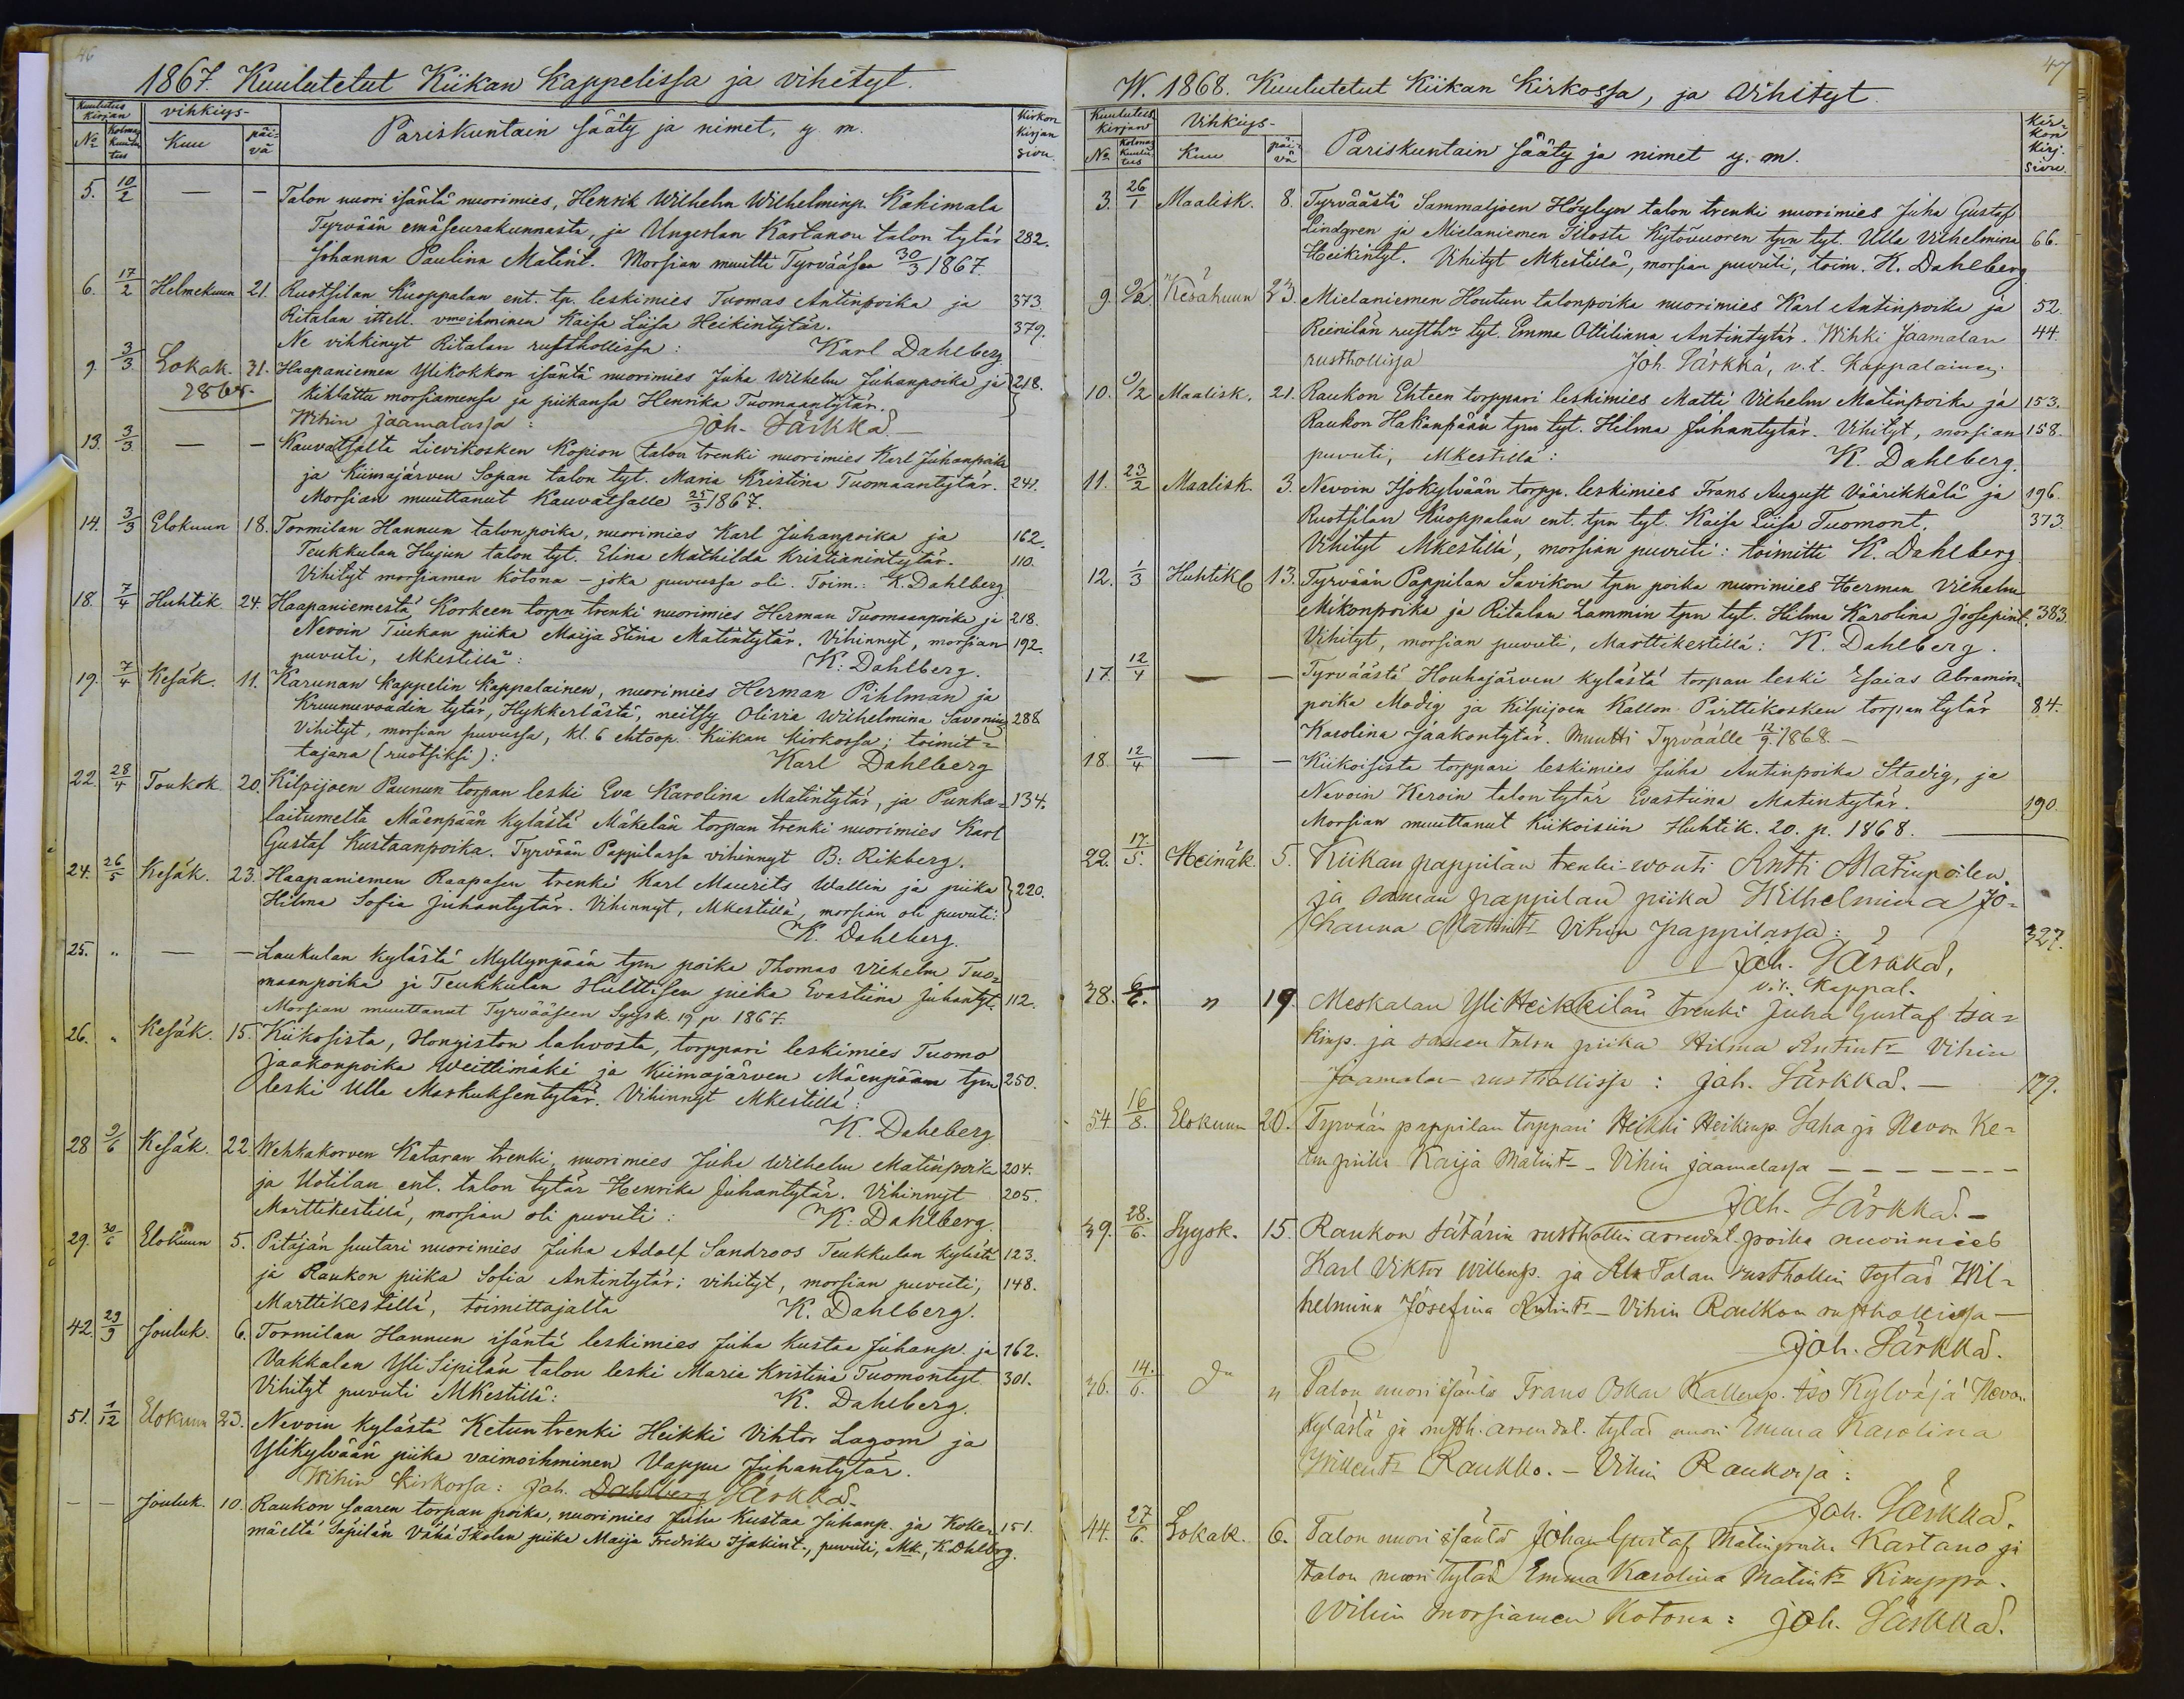 46
1867. Kuulutetut Kiikan Kappelissa ja vihityt.
Kuulutus Kirjan
vihkiys-
Kirkon Kirjan sivu
No
Kolmas Kuulutus
Kuu
päivä
Pariskuntain sääty ja nimet, y. m.
5. 10/2 — — Talon nuori isäntä nuorimies, Henrik Wilhelm Wilhelminp. Kahimala
Tyrvään emäseurakunnasta, ja Ungeslan Kartanon talon tytär 282.
Johanna Paulina Matint. Morsian muutti Tyrvääsee 30/3 1867.
6. 17/2 Helmekuun 21. Ruotsilan Kuoppalan ent. tp. leskimies Tuomas Antinpoika ja 373.
Ritalan ittell. vmoihminen Kaisa Liisa Heikintytär. 379.
Ne vihkinyt Ritalan rusthollissa: Karl Dahlberg
9. 3/3 Lokak. 31. Haapaniemen Ylikokkon isäntä nuorimies Juha Wilhelm Juhanpoika ja 218.
1868. kihlattu morsiamensa ja piikansa Henrika Tuomaantytär.
Wihin Jaamalassa: Joh. Särkkä.
13. 3/3 — — Kauvatsalta Lievikosken Kopion talon trenki nuorimies Karl Juhanpoika
ja Kiimajärven Sopan talon tyt. Maria Kristina Tuomaantytär. 241.
Morsian muuttanut Kauvatsalle 25/3 1867.
14. 3/3 Elokuun 18. Tormilan Hannun talonpoika, nuorimies Karl Juhanpoika ja 162.
Teukkulan Hujun talon tyt. Elina Mathilda Kristianintytär. 110.
Vihityt morsiamen kotona – joka puvussa oli. Toim.: K. Dahlberg
18. 7/4 Huhtik. 24. Haapaniemestä Korkeen torpn trenki nuorimies Herman Tuomaanpoika ja 218.
Nevoin Tiukan piika Maija Stina Matintytär. Vihinnyt, morsian 192.
puvuti, Mkestillä: K. Dahlberg.
19. 7/4 Kesäk. 11. Karunan Kappelin Kappalainen, nuorimies Herman Pihlman ja
Kruunuvoudin tytär, Hykkerlästä, neitsy Olivia Wilhelmina Savonius 288.
Vihityt, morsian puvussa, kl. 6 ehtoop. Kiikan kirkossa; toimit=
tajana (ruotsiksi): Karl Dahlberg
22. 28/4 Toukok. 20. Kilpijoen Paunun torpan leski Eva Karolina Matintytär, ja Punka= 134.
laitumelta Mäenpään kylästä Mäkelän torpan trenki nuorimies Karl
Gustaf Kustaanpoika. Tyrvään Pappilassa vihinnyt B: Rikberg.
24. 26/5 Kesäk. 23. Haapaniemen Raapasen trenki Karl Maurits Wallin ja piika 220.
Hilma Sofia Juhantytär. Vihinnyt, Mkestillä, morsian oli puvuti:
K. Dahlberg.
25. " — — Laukulan kylästä Myllynpään tpn poika Thomas Vilhelm Tuo=
maanpoika ja Teukkulan Hulttisen piika Evastiina Juhantyt. 112.
Morsian muuttanut Tyrvääseen Syysk. 19 p. 1867.
26. " Kesäk. 15. Kiikosista, Hongiston lahvosta, torppari leskimies Tuomo
Jaakonpoika Weittimäki ja Kiimajärven Mäenpään tpn 250.
leski Ulla Markuksentytär. Vihinnyt Mkestillä:
K. Dahlberg
28 9/6 Kesäk. 22. Wehkakorven Kataran trenki nuorimies Juha Wilhelm Matinpoika 204.
ja Uotilan ent. talon tytär Henrika Juhantytär. Vihinnyt 205.
Marttikestillä, morsian oli puvuti: K. Dahlberg.
29. 30/6 Elokuun 5. Pitäjän suutari nuorimies Juha Adolf Sandroos Teukkulan kylästä 123.
ja Raukon piika Sofia Antintytär; vihityt, morsian puvuti, 148.
Marttikestillä, toimittajalta K. Dahlberg.
42. 29/9 Jouluk. 6. Tormilan Hannun isäntä leskimies Juha Kustaa Juhanp. ja 162.
Vakkalan Yli Sipilän talon leski Maria Kristina Tuomontyt. 301.
Vihityt puvuti MKestillä: K. Dahlberg.
51. 1/12 Elokuun 23. Nevoin kylästä Ketun trenki Heikki Vihtor Lagom ja
Ylikylvään piika vaimoihminen Vappu Juhantytär.
Wihin kirkossa: Joh. Dahlberg Särkkä.
— — Jouluk. 10. Raukon Saaren torpan poika, nuorimies Juha Kustaa Juhanp. ja Koke= 151.
mäeltä Säpilän Vähä Skolan piika Maija Fredrika Isakint., puvuti, Mk., K. Dhlbrg.
47
W. 1868. Kuulutetut Kiikan Kirkossa, ja Wihityt.
Kuulutus kirjan
Vihkiys-
Kirkon Kirj. sivu
No.
Kolmas Kuulutus
Kuu
päivä
Pariskuntain sääty ja nimet y. m.
3. 26/1 Maalisk. 8. Tyrväästä Sammaljoen Höylyn talon trenki nuorimies Juha Gustaf
Lindgren ja Mielaniemen Tilosta Kytövuoren tpn tyt. Ulla Vilhelmina 66.
Heikintyt. Vihityt Mkestillä, morsian puvuti, toim. K. Dahlberg
9. 9/2 Kesäkuun 23. Mielaniemen Houtun talonpoika nuorimies Karl Antinpoika ja 52.
Reinilän rusthn tyt. Emma Ottiliana Antintytär. Wihki Jaamalan 44.
rusthollissa Joh. Särkkä, v.t. Kappalainen.
10. 9/2 Maalisk. 21. Raukon Ehteen torppari leskimies Matti Vilhelm Matinpoika ja 153.
Raukon Hakanpään tpn tyt. Hilma Juhantytär. Vihityt, morsian 158.
puvuti, MKestillä: K. Dahlberg.
11. 23/2 Maalisk. 3. Nevoin Isokylvään torpp. leskimies Frans August Väärikkälä ja 196.
Ruotsilan Kuoppalan ent. tpn tyt. Kaisa Liisa Tuomont. 373.
Vihityt Mkestillä, morsian puvuti: toimitti K. Dahlberg
12. 1/3 Huhtik 13. Tyrvään Pappilan Savikon tpn poika nuorimies Herman Vilhelm
Mikonpoika ja Ritalan Lammin tpn tyt. Hilma Karolina Joosepint. 383.
Vihityt, morsian puvuti, Marttikestillä: K. Dahlberg.
17. 12/4 — — Tyrväästä Houhajärven kylästä torpan leski Esaias Abramin-
poika Modig ja Kilpijoen Kallon Pirttikosken torpan tytär 84.
Karolina Jaakontytär. Muutti Tyrväälle 12/9 1868.—
18. 12/4 — — Kiikoisista torppari leskimies Juha Antinpoika Stadig, ja
Nevoin Keroin talon tytär Evastiina Matintytär. 190.
Morsian muuttanut Kiikoisiin Huhtik. 20. p. 1868.
22. 17/5. Heinäk. 5. Kiikan pappilan trenki-wouti Antti Matinpoilen
ja saman pappilan piika Wilhelmina Jo=
hanna Matintr Vihin pappilassa: 327.
Joh. Särkkä,
v.t. Kappal.
38. 6/6. " 19. Meskalan Yli Heikkilän trenki Juha Gustaf Isa=
kinp. ja saman talon piika Hilma Antintr Vihin
Jaamalan rusthollissa: Joh. Särkkä.— 179.
54 16/8. Elokuun 20. Tyrvään pappilan torppari Heikki Heikinp. Saha ja Nevon Ke=
tun piika Kaija Matintr – Vihin Jaamalassa
Joh. Särkkä.—
39. 28./6. Syysk. 15. Raukon Sätärin rusthollin arrendat. poika nuorimies
Karl Viktor Willenp. ja Ala Talan rusthollin tytär Wil=
helmina Josefina Antintr – Vihin Raukon rusthollissa —
Joh. Särkkä.
36. 14./6. do " Talon nuori isäntä Frans Oskar Kallenp. Iso Kylväjä Nevon
kylästä ja rusth. arrendat. tytär nuori Emma Karolina
Willentr Raukko. – Vihin Raukossa:
Joh. Särkkä.
44. 27/6. Lokak. 6. Talon nuori isäntä Johan Gustaf Matinpoika Kartano ja
talon nuori tytär Emma Karolina Matintr Kimppa.
Wihin morsiamen kotona: Joh. Särkkä.